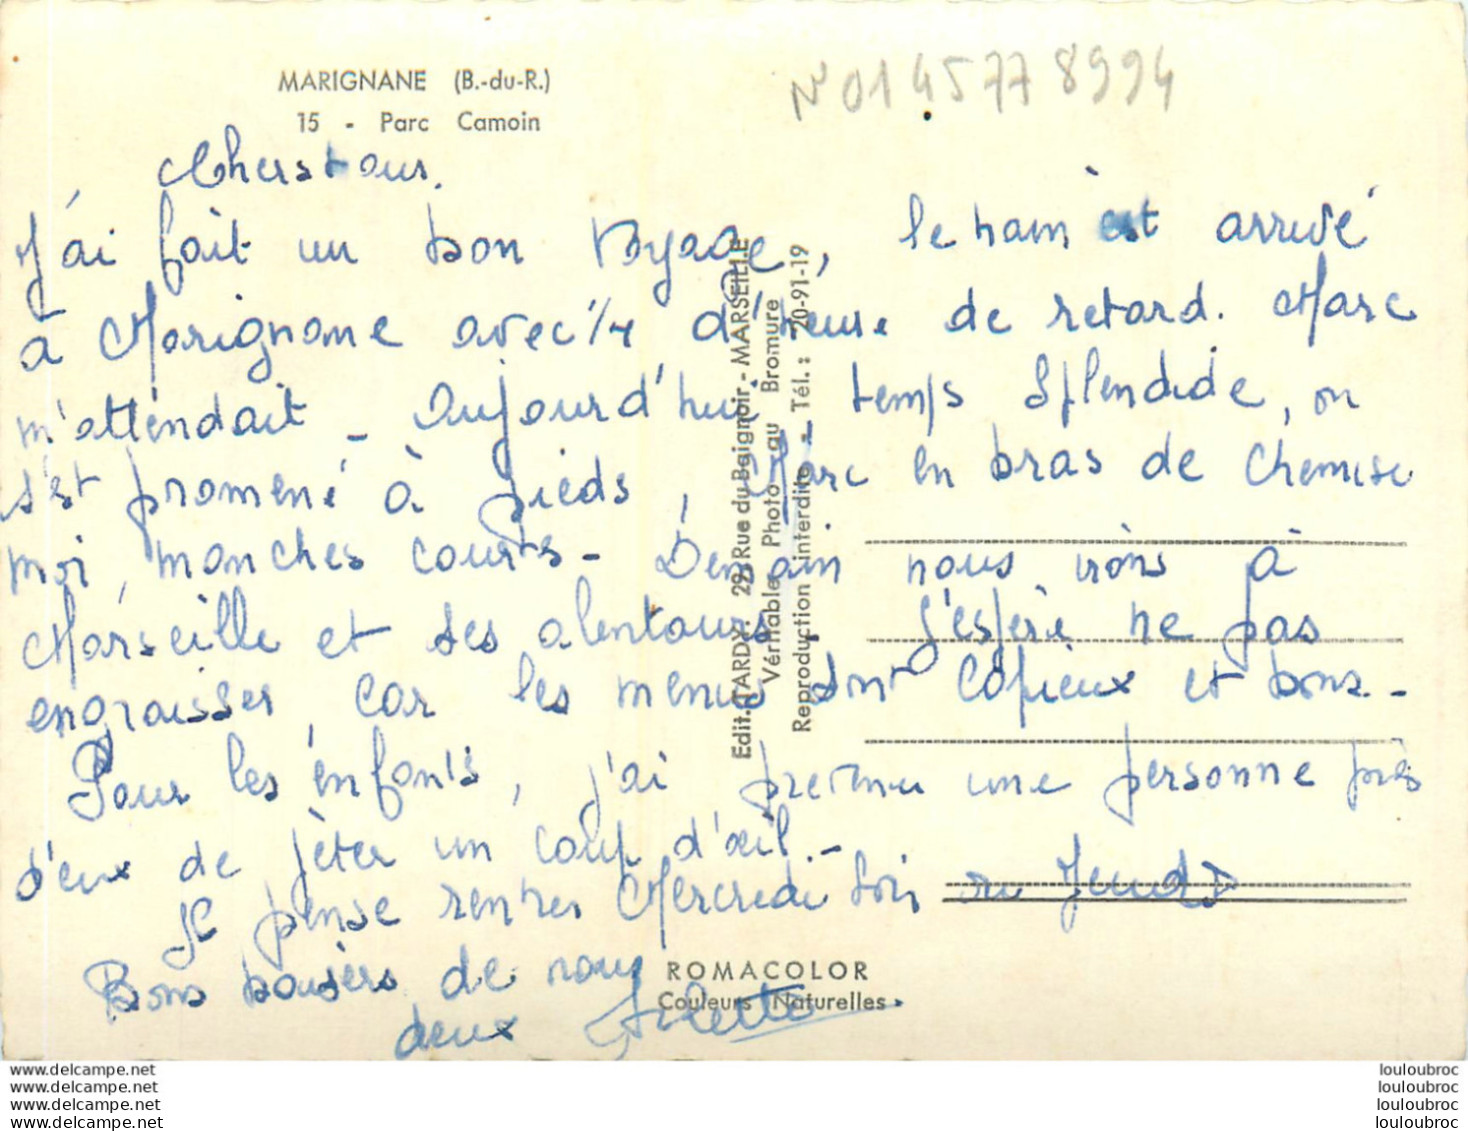 MARIGNANE (B.-du-R.)
15 - Parc Camoin
N° 01 4577 8994
Chers tous.
J'ai fait un bon voyage, le train est arrivé
à Marignane avec 1/4 d'heure de retard. Marc
m'attendait - Aujourd'hui temps splendide, on
s'est promené à pieds, Marc en bras de chemise
moi, manches courtes - Demain nous irons à
Marseille et ses alentours. J'espère ne pas
engraisser, car les menus sont copieux et bons -
Pour les enfants, j'ai prévenu une personne près
d'eux de jeter un coup d'œil. -
Je pense rentrer Mercredi soir ou Jeudi
Bons baisers de nous
deux
Edit. TARDY. 29, Rue du Baignoir - MARSEILLE
Véritable Photo au Bromure
Reproduction interdite - Tél. : 20-91-19
ROMACOLOR
Couleurs Naturelles
www.delcampe.net
www.delcampe.net
www.delcampe.net
www.delcampe.net
louloubroc
louloubroc
louloubroc
louloubroc